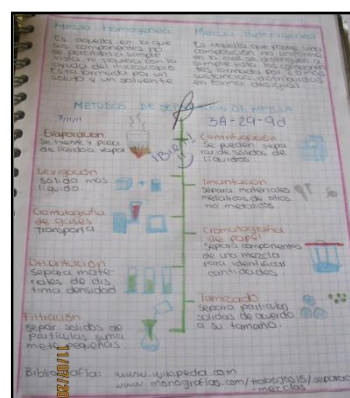 Mezcla Homogenea
Es aquella en la que
sus componentes no
se perciben a simple
vista, ni siquiera con la
ayuda del microscopio
Esta formada por un
soluto y un solvente
Mezcla Heterogenea
Es aquella que posee una
composición no uniforme
en la cual se distinguen a
simple vista sus componentes
formada por 2 o mas
sustancias, distribuidas
en forma desigual
METODOS DE
DE MEZCLA
3A-29-9d
¡BIEN!
Evaporacion
Se hierve y pasa
de liquido a vapor
Levigacion
solido mas
liquido
Cromatografia
de gases
Transporta
Decantacion
separa mate-
riales de dis
tinta densidad
Filtracion
separ solidos de
particulas suma
mete pequeñas
Centrifugacion
Se pueden sepa
rar solidos de
liquidos
Imantacion
separa materiales
metalicos de otros
no metalicos
Cromatografia
de papel
separa componentes
de una mezcla
para identificar
cantidades
Tamizado
separa particulas
solidas de acuerdo
a su tamaño
Bibliografia: www.wikipedia.com
www.monografias.com/trabajos15/separac
-mezclas
11/03/20